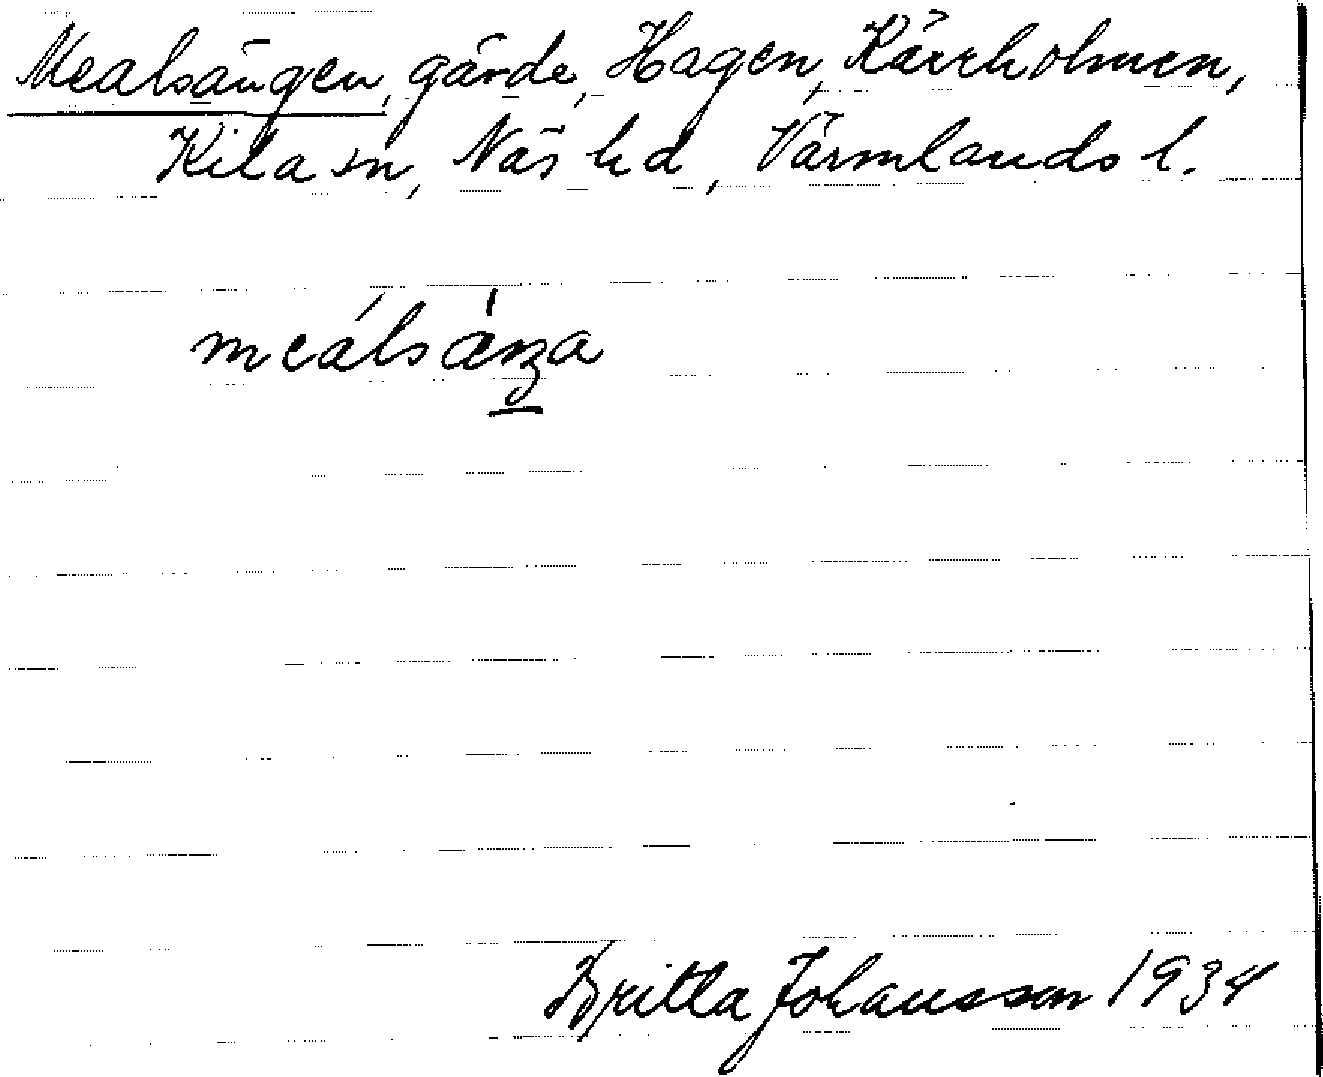 Mealsängen, gärde, Hagen, Kärrholmen,
Kila sn, Näs hd, Värmlands l.
meálsáŋa
Britta Johansson 1934